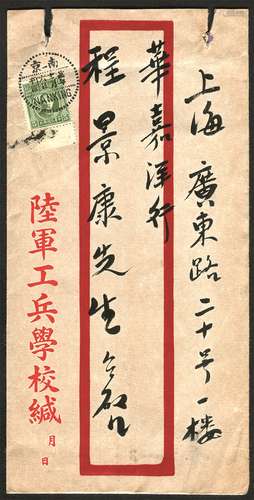 上海廣東路二十号一楼
華嘉洋行
程景康先生台啓
南京
NANKING
陸軍工兵學校緘
月 日